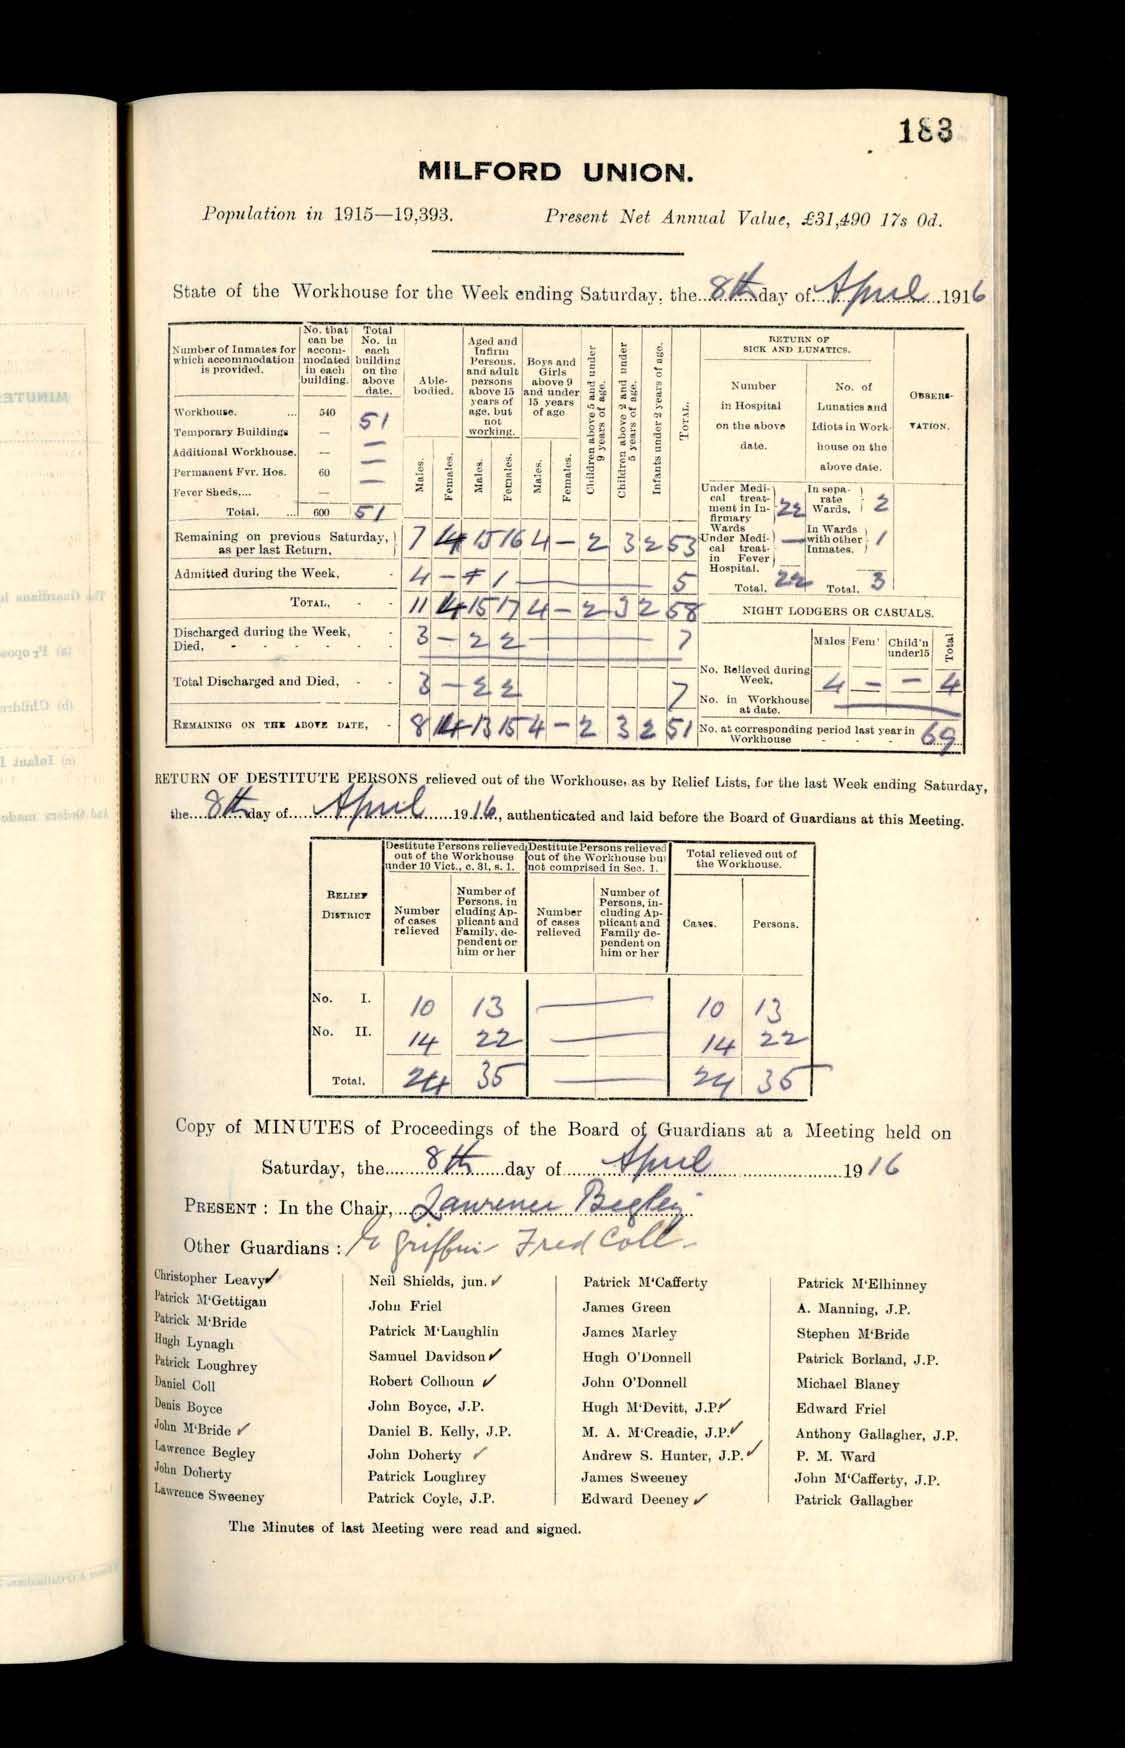 183
MILFORD UNION.
Population in 1915—19,393. Present Net Annual Value, £31,490 17s 0d.
State of the Workhouse for the Week ending Saturday, the 8th day of April 1916
Number of Inmates for which accommodation is provided.
No. that can be accommodated in each building.
Total No. in each building on the above date.
Able-bodied.
Aged and Infirm Persons, and adult persons above 15 years of age, but not working.
Boys and Girls above 9 and under 15 years of age
Children above 5 and under 9 years of age.
Children above 2 and under 5 years of age.
Infants under 2 years of age.
TOTAL.
Males. Females. Males. Females. Males. Females.
Workhouse. ... 540 51
Temporary Buildings — —
Additional Workhouse. — —
Permanent Fvr. Hos. 60 —
Fever Sheds,... —
Total, ... 600 51
Remaining on previous Saturday, as per last Return, 7 4 15 16 4 — 2 3 2 53
Admitted during the Week, - 4 — 1 5
TOTAL, - - 11 4 15 17 4 — 2 3 2 58
Discharged during the Week, - 3 — 2 2 7
Died, - - - - - -
Total Discharged and Died, - - 3 — 2 2 7
REMAINING ON THE ABOVE DATE, - 8 4 13 15 4 — 2 3 2 51
RETURN OF SICK AND LUNATICS.
OBSERVATION.
Number in Hospital on the above date.
No. of Lunatics and Idiots in Workhouse on the above date.
Under Medical treatment in Infirmary Wards 22
In separate Wards, 2
Under Medical treatment in Fever Hospital. —
In Wards with other Inmates. 1
Total. 22 Total. 3
NIGHT LODGERS OR CASUALS.
Males Fem' Child'n under 15 Total
No. Relieved during Week, 4 — — 4
No. in Workhouse at date.
No. at corresponding period last year in Workhouse - - - 69
RETURN OF DESTITUTE PERSONS relieved out of the Workhouse, as by Relief Lists, for the last Week ending Saturday,
the 8th day of April 1916, authenticated and laid before the Board of Guardians at this Meeting.
RELIEF DISTRICT
Destitute Persons relieved out of the Workhouse under 10 Vict., c. 31, s. 1.
Destitute Persons relieved out of the Workhouse but not comprised in Sec. 1.
Total relieved out of the Workhouse.
Number of cases relieved
Number of Persons, in cluding Applicant and Family, dependent or him or her
Number of cases relieved
Number of Persons, including Applicant and Family dependent on him or her
Cases. Persons.
No. I. 10 13 — 10 13
No. II. 14 22 — 14 22
Total. 24 35 — 24 35
Copy of MINUTES of Proceedings of the Board of Guardians at a Meeting held on
Saturday, the 8th day of April 1916
PRESENT : In the Chair, Lawrence Begley
Other Guardians : E Griffin Fred Coll
Christopher Leavy ✓
Patrick M'Gettigan
Patrick M'Bride
Hugh Lynagh
Patrick Loughrey
Daniel Coll
Denis Boyce
John M'Bride ✓
Lawrence Begley
John Doherty
Lawrence Sweeney
Neil Shields, jun. ✓
John Friel
Patrick M'Laughlin
Samuel Davidson ✓
Robert Colhoun ✓
John Boyce, J.P.
Daniel B. Kelly, J.P.
John Doherty ✓
Patrick Loughrey
Patrick Coyle, J.P.
Patrick M'Cafferty
James Green
James Marley
Hugh O'Donnell
John O'Donnell
Hugh M'Devitt, J.P. ✓
M. A. M'Creadie, J.P. ✓
Andrew S. Hunter, J.P. ✓
James Sweeney
Edward Deeney ✓
Patrick M'Elhinney
A. Manning, J.P.
Stephen M'Bride
Patrick Borland, J.P.
Michael Blaney
Edward Friel
Anthony Gallagher, J.P.
P. M. Ward
John M'Cafferty, J.P.
Patrick Gallagher
The Minutes of last Meeting were read and signed.